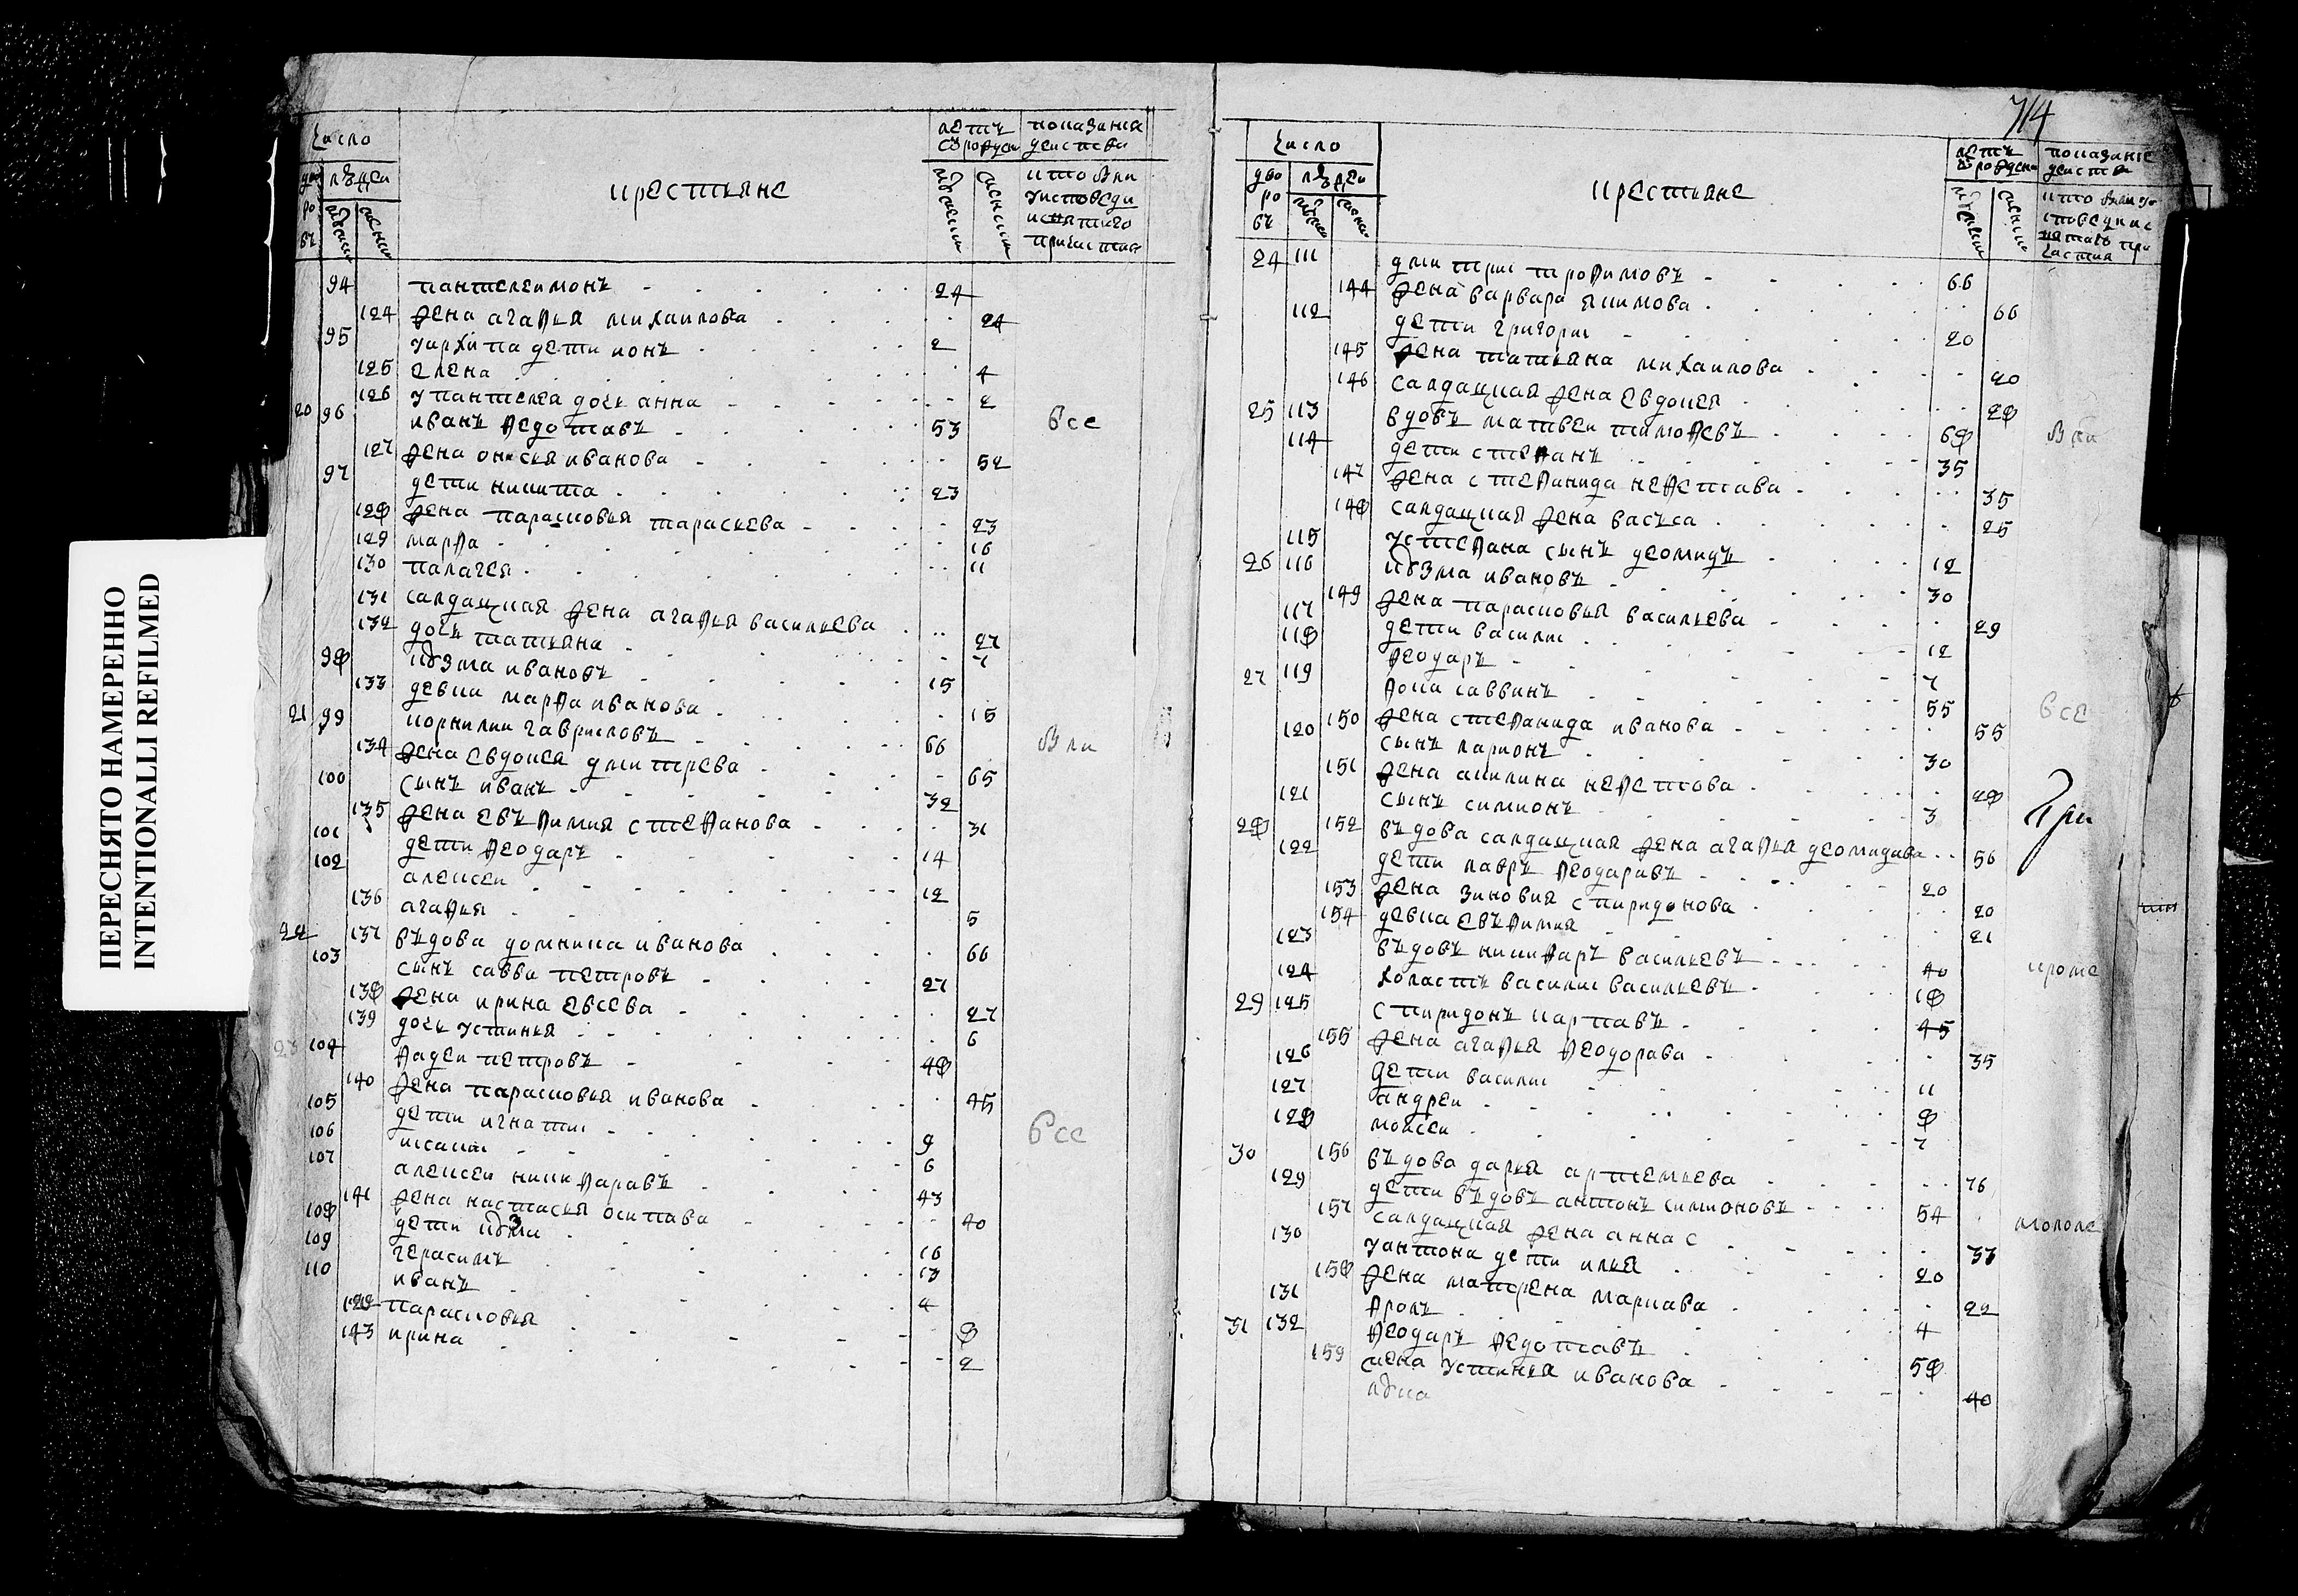 ПЕРЕСНЯТО НАМЕРЕННО
INTENTIONALLI REFILMED
число
дворовъ
людеи
крестьяне
летъ
показания
94 пантелеимонъ 24
124 жена агафья михаилова 24
95 уархипа дети ионъ 2
125 елена 4
126 упантелея дочь анна 2
20 96 иванъ федотавъ 53 все
127 жена онисья иванова 52
97 дети никита 23
128 жена парасковья тарасьева 23
129 марфа 16
130 палагея 11
131 салдацкая жена агафья васильева 27
132 дочь татьяна 7
98 кузма ивановъ 15
133 девка марфа иванова 15
21 99 корнилии гавриловъ 66
134 жена евдокея дмитрева 65
100 сынъ иванъ 32
135 жена евъфимия стефанова 31
101 дети феодаръ 14
102 алексеи 12
136 агафья 5
22 137 въдова домника иванова 66
103 сынъ савва петровъ 27
138 жена ирина евсева 27
139 дочь устинья 6
23 104 фадеи петровъ 48
140 жена парасковья иванова 45
105 дети игнатии 9 все
106 исакии 6
107 алексеи никифаравъ 43
141 жена настасья осипава 40
108 дети кузма 16
109 герасимъ 13
110 иванъ 4
142 парасковья 8
143 ирина 2
714
число
дворовъ
людеи
крестьяне
летъ
показание
24 111 дмитрии трофимовъ 66
144 жена варвара якимова 66
112 дети григории 20
145 жена татьяна михаилова 20
146 салдацкая жена евдокея 28
25 113 вдовъ матвеи тимофевъ 68
114 дети стефанъ 35
147 жена стефанида нефетава 35
148 салдацкая жена васъса 25
115 устефана сынъ деомидъ 12
26 116 кузма ивановъ 30
149 жена парасковья васильева 29
117 дети василии 12
118 феодаръ 7
27 119 фока саввинъ 55 все
150 жена стефанида иванова 55
120 сынъ ларионъ 30
151 жена акилина нефетова 28
121 сынъ симионъ 3
28 152 въдова салдацкая жена агафья деомидава 56
122 дети лавръ феодаравъ 20
153 жена зиновия спиридонова 20
154 девка евъфимия 21
123 въдовъ никифаръ васильевъ 40 кроме
124 холастъ василии васильевъ 18
29 125 спиридонъ карпавъ 45
155 жена агафья феодорава 35
126 дети василии 11
127 андреи 8
128 моисеи 7
30 156 въдова дарья артемьева 76
129 дети въдовъ антонъ симионовъ 54
157 салдацкая жена анна с 37
130 уантона дети илья 20
158 жена матрена маркава 22
131 фролъ 4
31 132 феодаръ федотавъ 58
159 жена устинья иванова 40